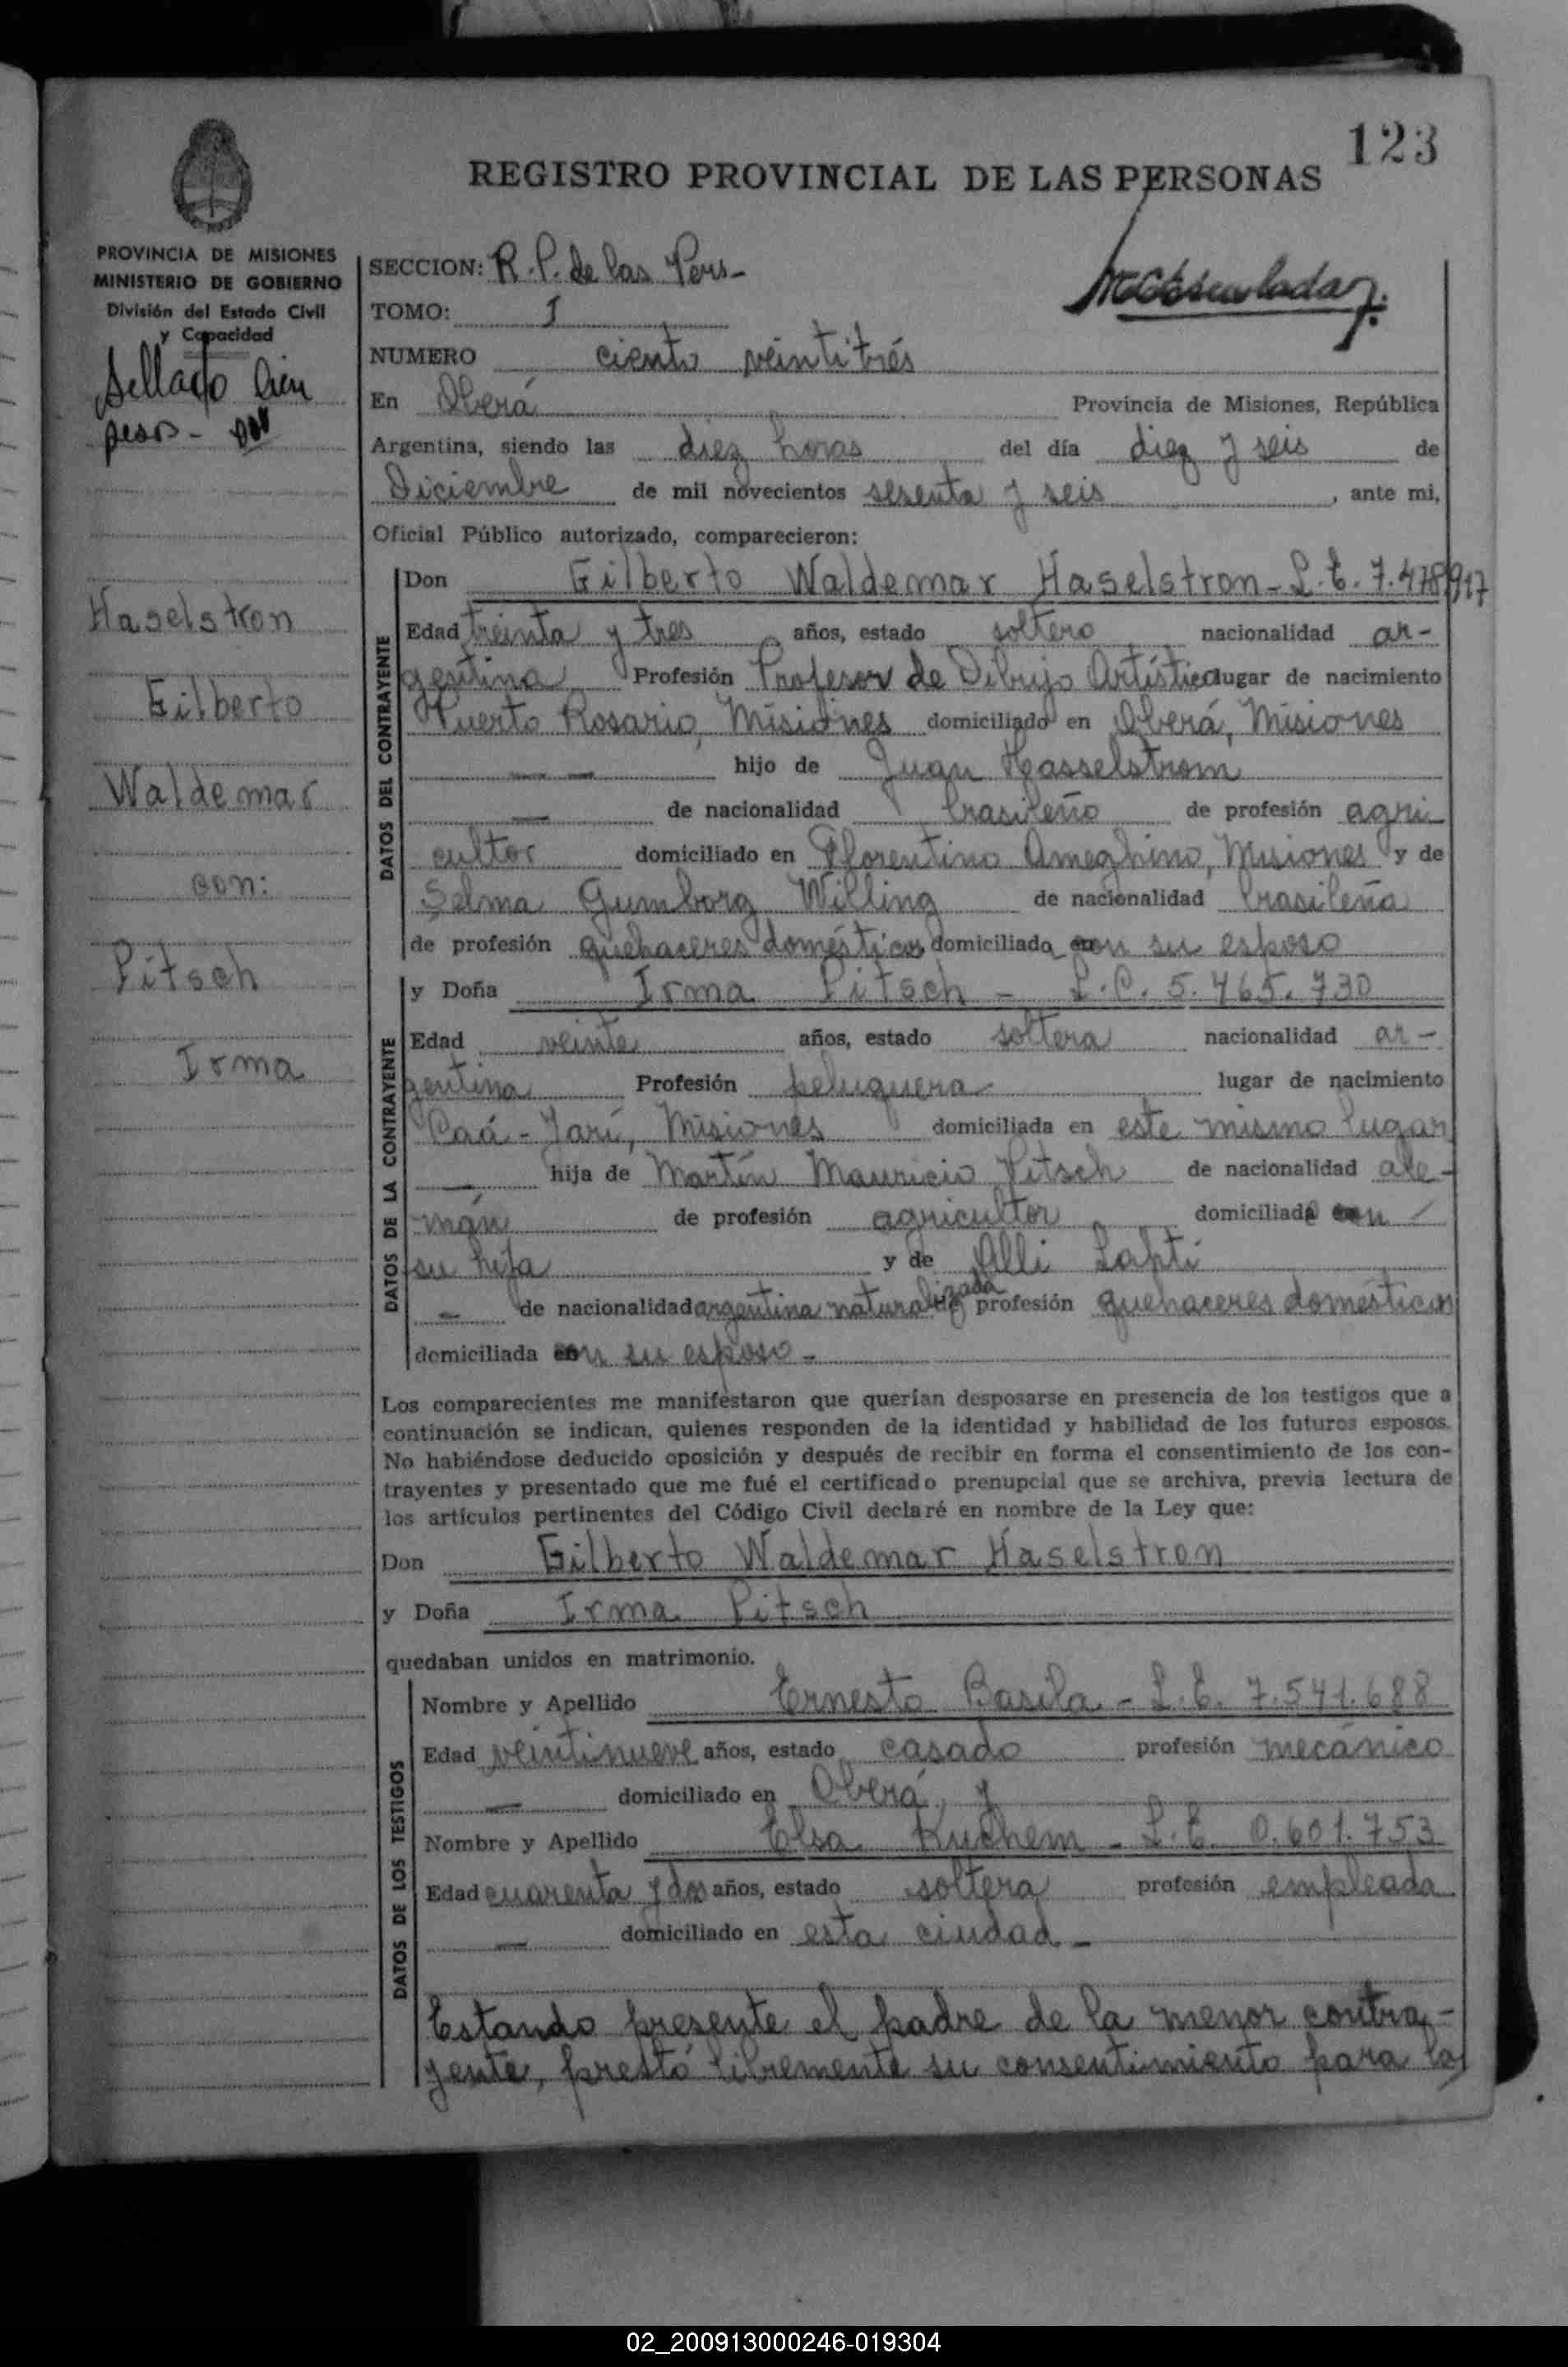 123
REGISTRO PROVINCIAL DE LAS PERSONAS
PROVINCIA DE MISIONES
MINISTERIO DE GOBIERNO
División del Estado Civil
y Capacidad
Sellado Cien
pesos -
Haselstron
Gilberto
Waldemar
con:
Pitsch
Irma
SECCION: R. P. de las Pers-
TOMO: I
NUMERO ciento veintitrés
En Oberá Provincia de Misiones, República
Argentina, siendo las diez horas del día diez y seis de
Diciembre de mil novecientos sesenta y seis, ante mi,
Oficial Público autorizado, comparecieron:
DATOS DEL CONTRAYENTE
Don Gilberto Waldemar Haselstron - L. E. 7.478.917
Edad treinta y tres años, estado soltero nacionalidad ar-
gentina Profesión Profesor de Dibujo Artístico lugar de nacimiento
Puerto Rosario, Misiones domiciliado en Oberá, Misiones
— — hijo de Juan Hasselstrom
— de nacionalidad brasileño de profesión agri
cultor domiciliado en Florentino Ameghino, Misiones y de
Selma Gumborg Willing de nacionalidad brasileña
de profesión quehaceres domésticos domiciliada con su esposo
DATOS DE LA CONTRAYENTE
y Doña Irma Pitsch - L. C. 5.465.730
Edad veinte años, estado soltera nacionalidad ar-
gentina Profesión peluquera lugar de nacimiento
Caá-Yarí, Misiones domiciliada en este mismo lugar
— hija de Martín Mauricio Pitsch de nacionalidad ale-
mán de profesión agricultor domiciliado con
su hija y de Alli Lahti
— de nacionalidad argentina naturalizada de profesión quehaceres domésticos
domiciliada con su esposo -
Los comparecientes me manifestaron que querían desposarse en presencia de los testigos que a
continuación se indican, quienes responden de la identidad y habilidad de los futuros esposos.
No habiéndose deducido oposición y después de recibir en forma el consentimiento de los con-
trayentes y presentado que me fué el certificado prenupcial que se archiva, previa lectura de
los artículos pertinentes del Código Civil declaré en nombre de la Ley que:
Don Gilberto Waldemar Haselstron
y Doña Irma Pitsch
quedaban unidos en matrimonio.
DATOS DE LOS TESTIGOS
Nombre y Apellido Ernesto Basila - L. E. 7.541.688
Edad veintinueve años, estado casado profesión mecánico
— domiciliado en Oberá, y
Nombre y Apellido Elsa Kuchem - L. C. 0.601.753
Edad cuarenta y dos años, estado soltera profesión empleada
— domiciliado en esta ciudad -
Estando presente el padre de la menor contra-
yente, prestó libremente su consentimiento para la
02_200913000246-019304